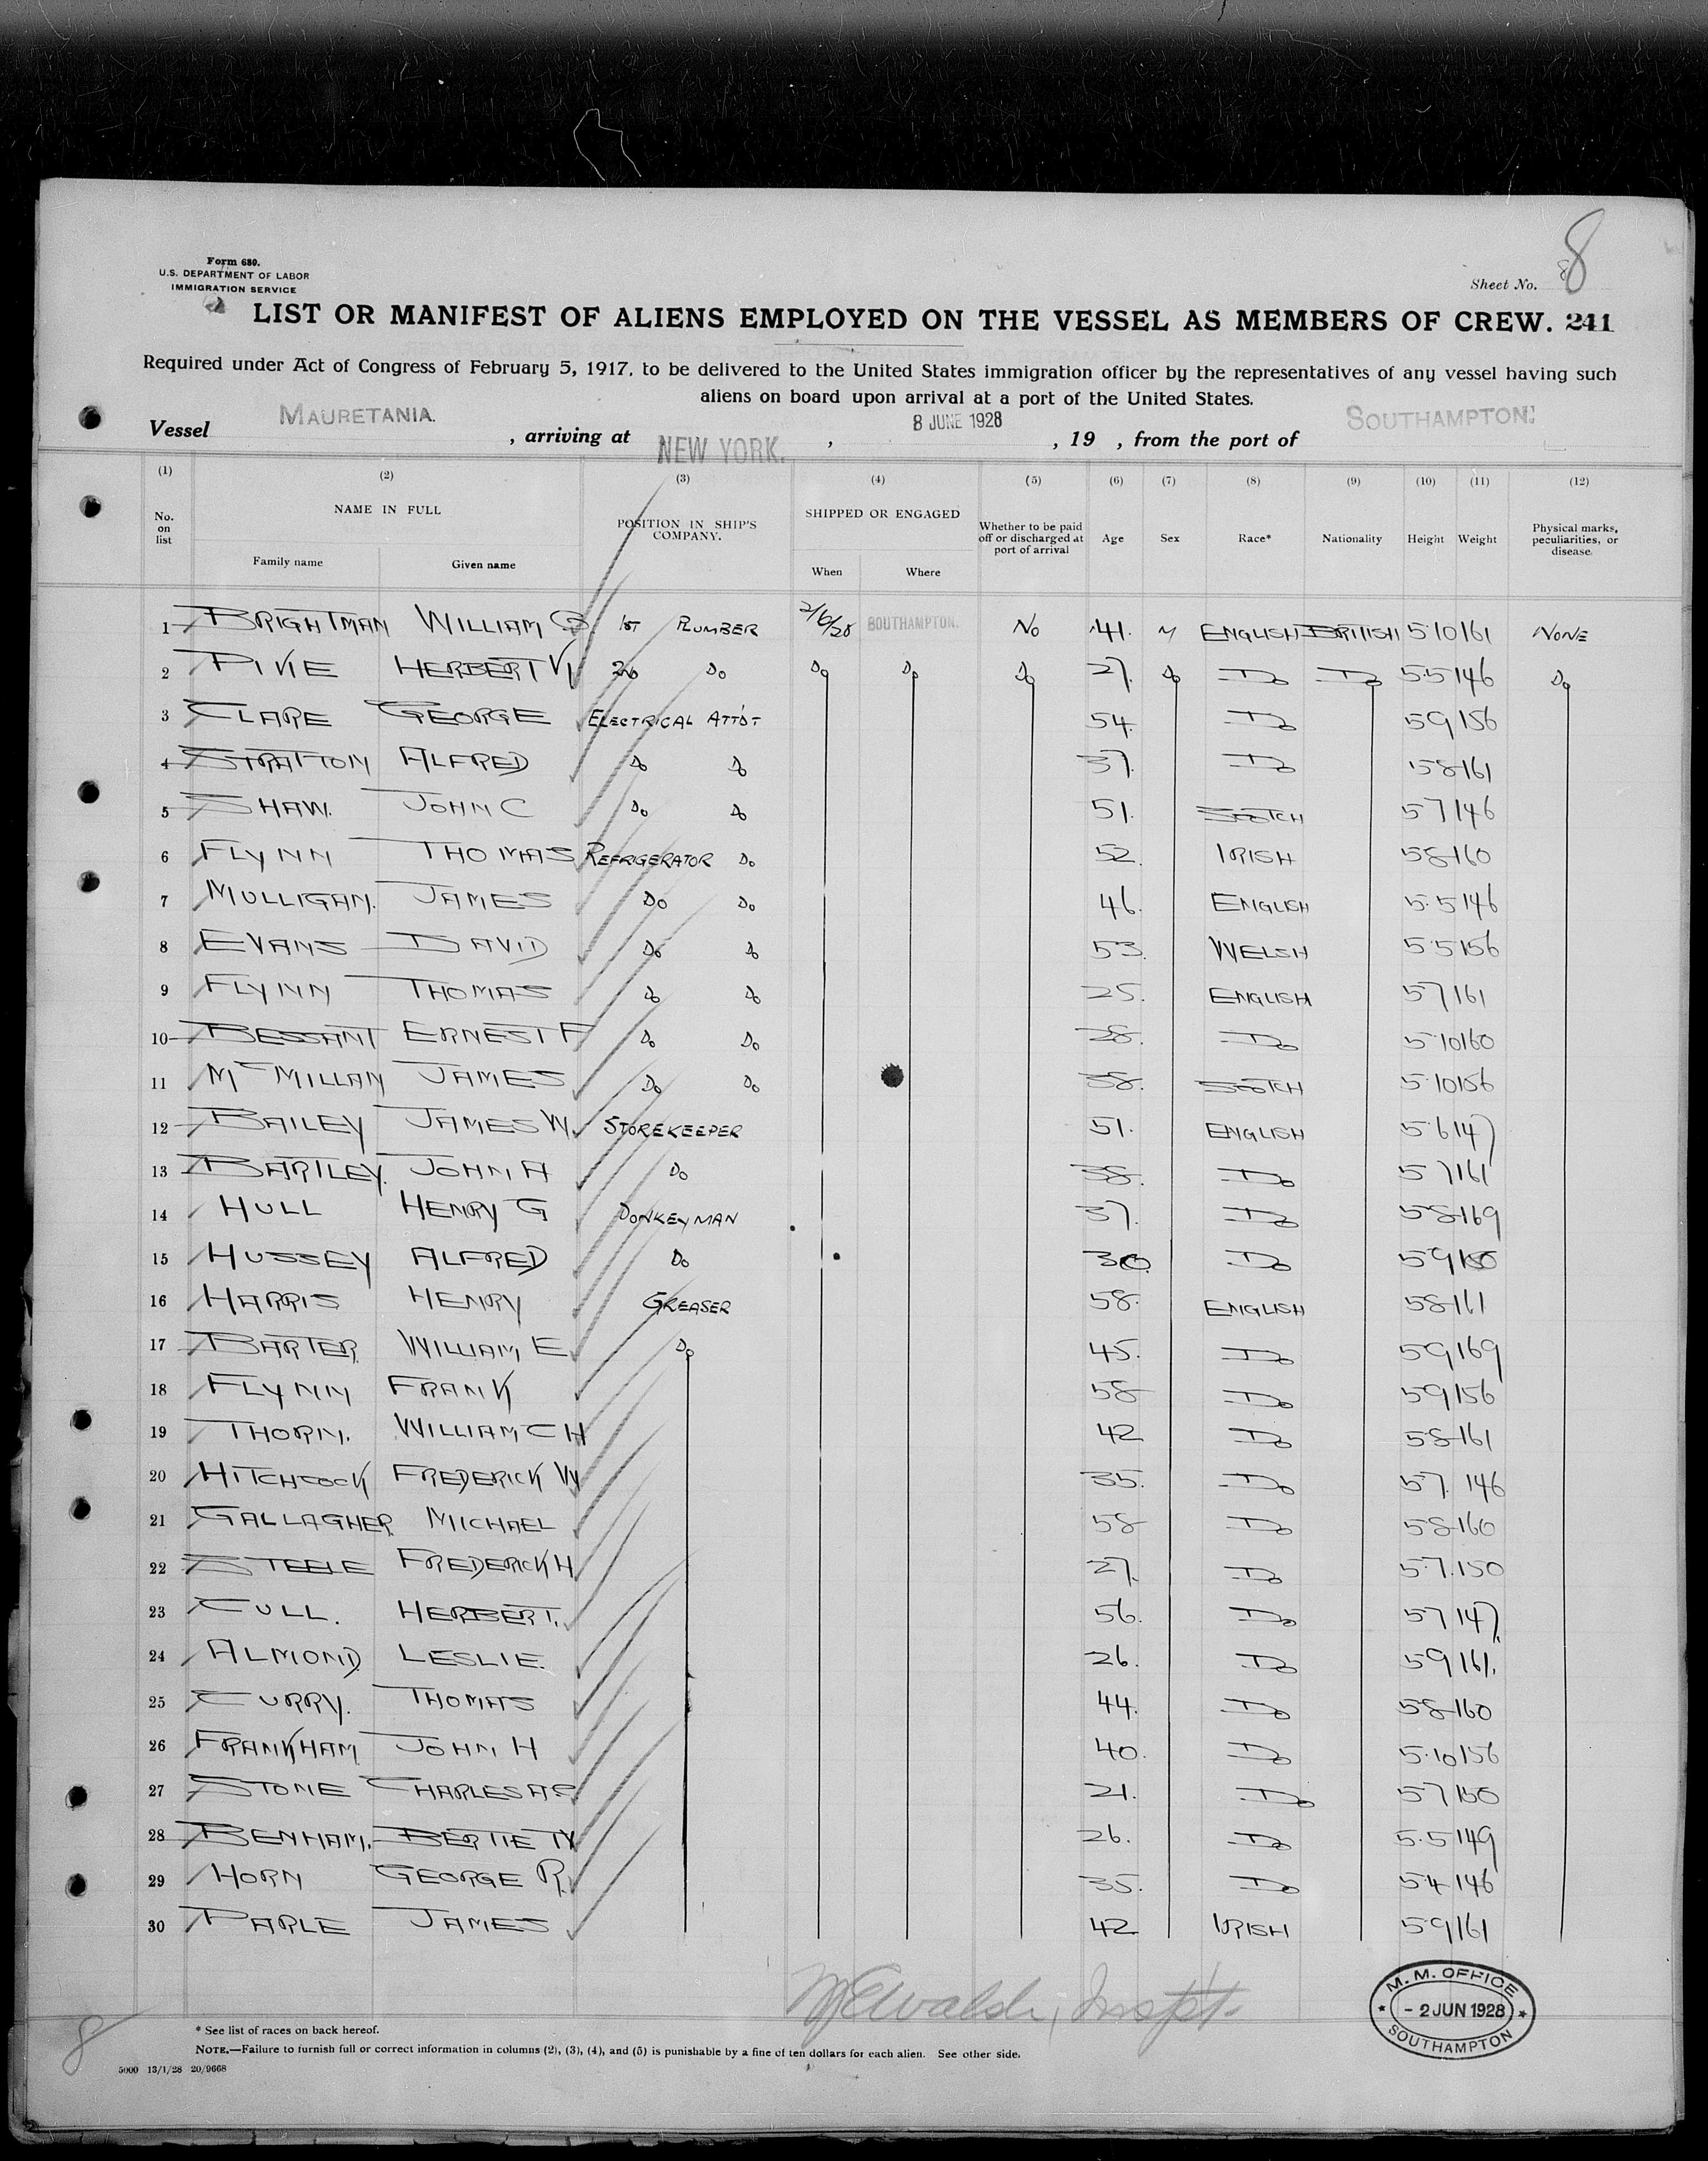 Form 680.
U.S. DEPARTMENT OF LABOR
IMMIGRATION SERVICE
Sheet No. 8
8
LIST OR MANIFEST OF ALIENS EMPLOYED ON THE VESSEL AS MEMBERS OF CREW. 241
Required under Act of Congress of February 5, 1917, to be delivered to the United States immigration officer by the representatives of any vessel having such
aliens on board upon arrival at a port of the United States.
Vessel MAURETANIA. , arriving at NEW YORK. , 8 JUNE 1928 , 19 , from the port of SOUTHAMPTON.
(1) (2) (3) (4) (5) (6) (7) (8) (9) (10) (11) (12)
No. on list NAME IN FULL Family name Given name POSITION IN SHIP'S COMPANY. SHIPPED OR ENGAGED When Where Whether to be paid off or discharged at port of arrival Age Sex Race* Nationality Height Weight Physical marks, peculiarities, or disease.
1 BRIGHTMAN WILLIAM 1ST PLUMBER 2/6/28 SOUTHAMPTON. NO 41. M ENGLISH BRITISH 5·10 161 NONE
2 PINE HERBERT W 2ND DO DO DO DO 27. DO DO DO 5·5 146 DO
3 CLARE GEORGE ELECTRICAL ATTDT 54. DO 5 9 156
4 STRATTON ALFRED DO DO 37. DO 5 8 161
5 SHAW. JOHN C DO DO 51. SCOTCH 5 7 146
6 FLYNN THOMAS REFRIGERATOR DO 52. IRISH 5 8 160
7 MULLIGAN. JAMES DO DO 46. ENGLISH 5·5 146
8 EVANS DAVID DO DO 53. WELSH 5·5 156
9 FLYNN THOMAS DO DO 25. ENGLISH 5 7 161
10 BESSANT ERNEST F DO DO 28. DO 5·10 160
11 MCMILLAN JAMES DO DO 38. SCOTCH 5·10 156
12 BAILEY JAMES W. STOREKEEPER 51. ENGLISH 5·6 147
13 BARTLEY. JOHN A DO 38. DO 5 7 161
14 HULL HENRY G DONKEYMAN 37. DO 5 8 169
15 HUSSEY ALFRED DO 30. DO 5 9
16 HARRIS HENRY GREASER 58. ENGLISH 5 8 161
17 BARTER. WILLIAM E. DO 45. DO 5 9 169
18 FLYNN FRANK 58 DO 5 9 156
19 THORN. WILLIAM C H 42 DO 5 8 161
20 HITCHCOCK FREDERICK W 35. DO 5 7. 146
21 GALLAGHER MICHAEL 58 DO 5 8 160
22 STEELE FREDERICK H 27. DO 5·7. 150
23 CULL. HERBERT. 56. DO 5 7 147.
24 ALMOND LESLIE. 26. DO 5 9 161.
25 CURRY. THOMAS 44. DO 5 8 160
26 FRANKHAM JOHN H 40. DO 5·10 156
27 STONE CHARLES A 21. DO 5 7 150
28 BENHAM. BERTIE W 26. DO 5·5 149
29 HORN GEORGE R. 35. DO 5 4 146
30 PARLE JAMES 42 IRISH 5·9 161
M. M. OFFICE
- 2 JUN 1928
SOUTHAMPTON
8
* See list of races on back hereof.
NOTE.—Failure to furnish full or correct information in columns (2), (3), (4), and (5) is punishable by a fine of ten dollars for each alien. See other side.
5000 13/1/28 20/9668